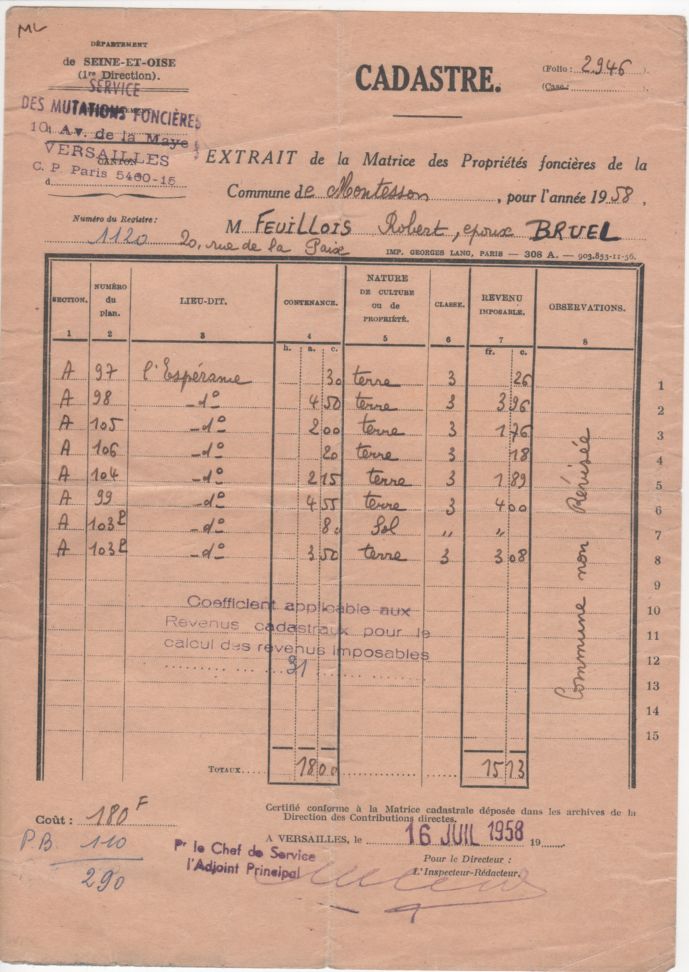 ML
DÉPARTEMENT
de SEINE-ET-OISE
(1re Direction).
SERVICE
DES MUTATIONS FONCIÈRES
10, Av. de la Maye
VERSAILLES
CANTON
C. P. Paris 5460-15
d
CADASTRE.
(Folio: 2946).
(Case: ).
EXTRAIT de la Matrice des Propriétés foncières de la
Commune de Montesson, pour l'année 1958,
Numéro du Registre:
1120
M FEUILLOIS Robert, époux BRUEL
20, rue de la Paix
IMP. GEORGES LANG, PARIS — 308 A. — 903.853-11-56.
SECTION. NUMÉRO du plan. LIEU-DIT. CONTENANCE. NATURE DE CULTURE ou de PROPRIÉTÉ. CLASSE. REVENU IMPOSABLE. OBSERVATIONS.
1 2 3 4 5 6 7 8
h. a. c. fr. c.
A 97 l'Espérance 30 terre 3 26 1
A 98 -do 4 50 terre 3 3 96 2
A 105 -do 2 00 terre 3 1 76 3
A 106 -do 20 terre 3 18 4
A 104 -do 2 15 terre 3 1 89 5
A 99 -do 4 55 terre 3 4 00 6
A 103P -do 80 Sol " " 7
A 103P -do 3 50 terre 3 3 08 8
Commune non Révisée
9
10
11
12
13
14
15
Coefficient applicable aux
Revenus cadastraux pour le
calcul des revenus imposables
31
TOTAUX 18 00 15 13
Coût: 180 F
P.B. 110
290
Certifié conforme à la Matrice cadastrale déposée dans les archives de la
Direction des Contributions directes.
A VERSAILLES, le 16 JUIL 1958 19
Pr le Chef de Service
l'Adjoint Principal
Pour le Directeur:
L'Inspecteur-Rédacteur.